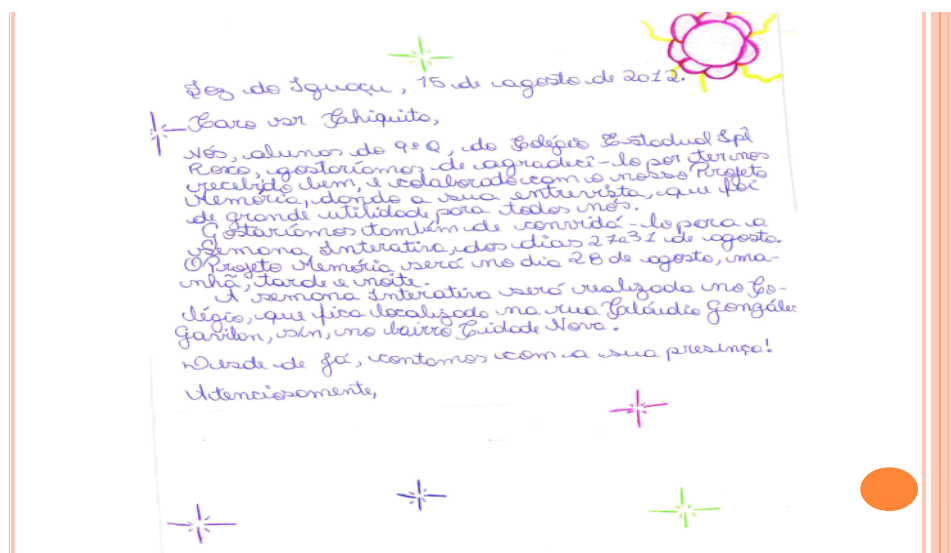 Foz do Iguaçu, 15 de agosto de 2012.
Caro sr Chiquito,
Nós, alunos do 9º Q, do Colégio Estadual Ipê
Roxo, gostaríamos de agradecê-lo por ter nos
recebido bem, e colaborado com o nosso Projeto
Memória, dando a sua entrevista, que foi
de grande utilidade para todos nós.
Gostaríamos também de convidá-lo para a
Semana Interativa, dos dias 27a31 de agosto.
O Projeto Memória será no dia 28 de agosto, ma-
nhã, tarde e noite.
A semana Interativa será realizada no Co-
légio, que fica localizado na rua Cláudio Gonzáles
Gavilon, s/n, no bairro Cidade Nova.
Desde de já, contamos com a sua presença!
Atenciosamente,